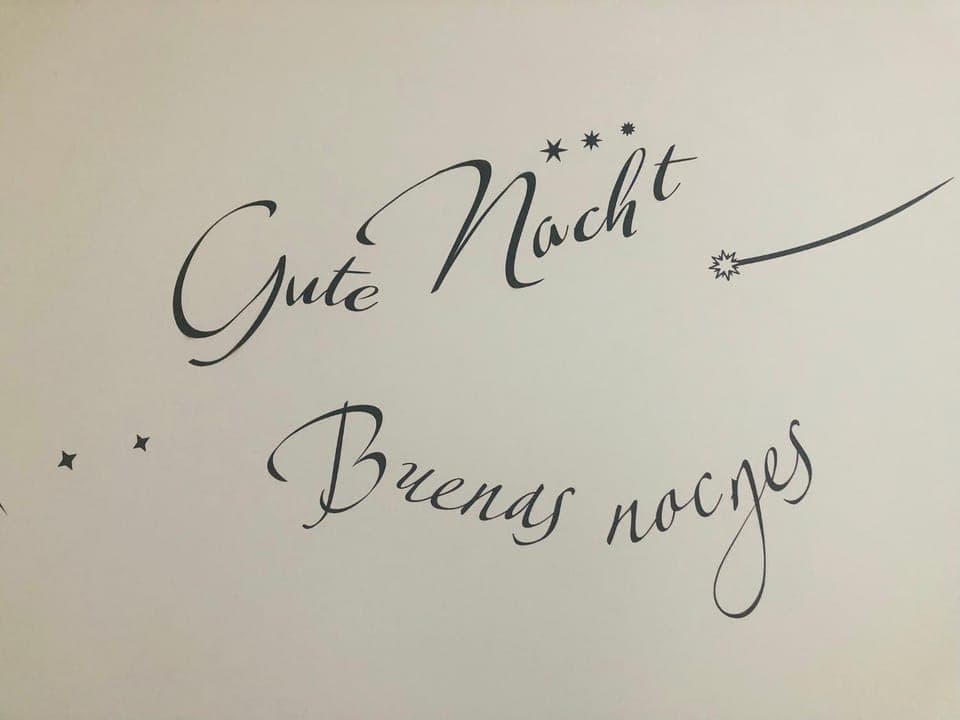 Gute Nacht
Buenas nocyes